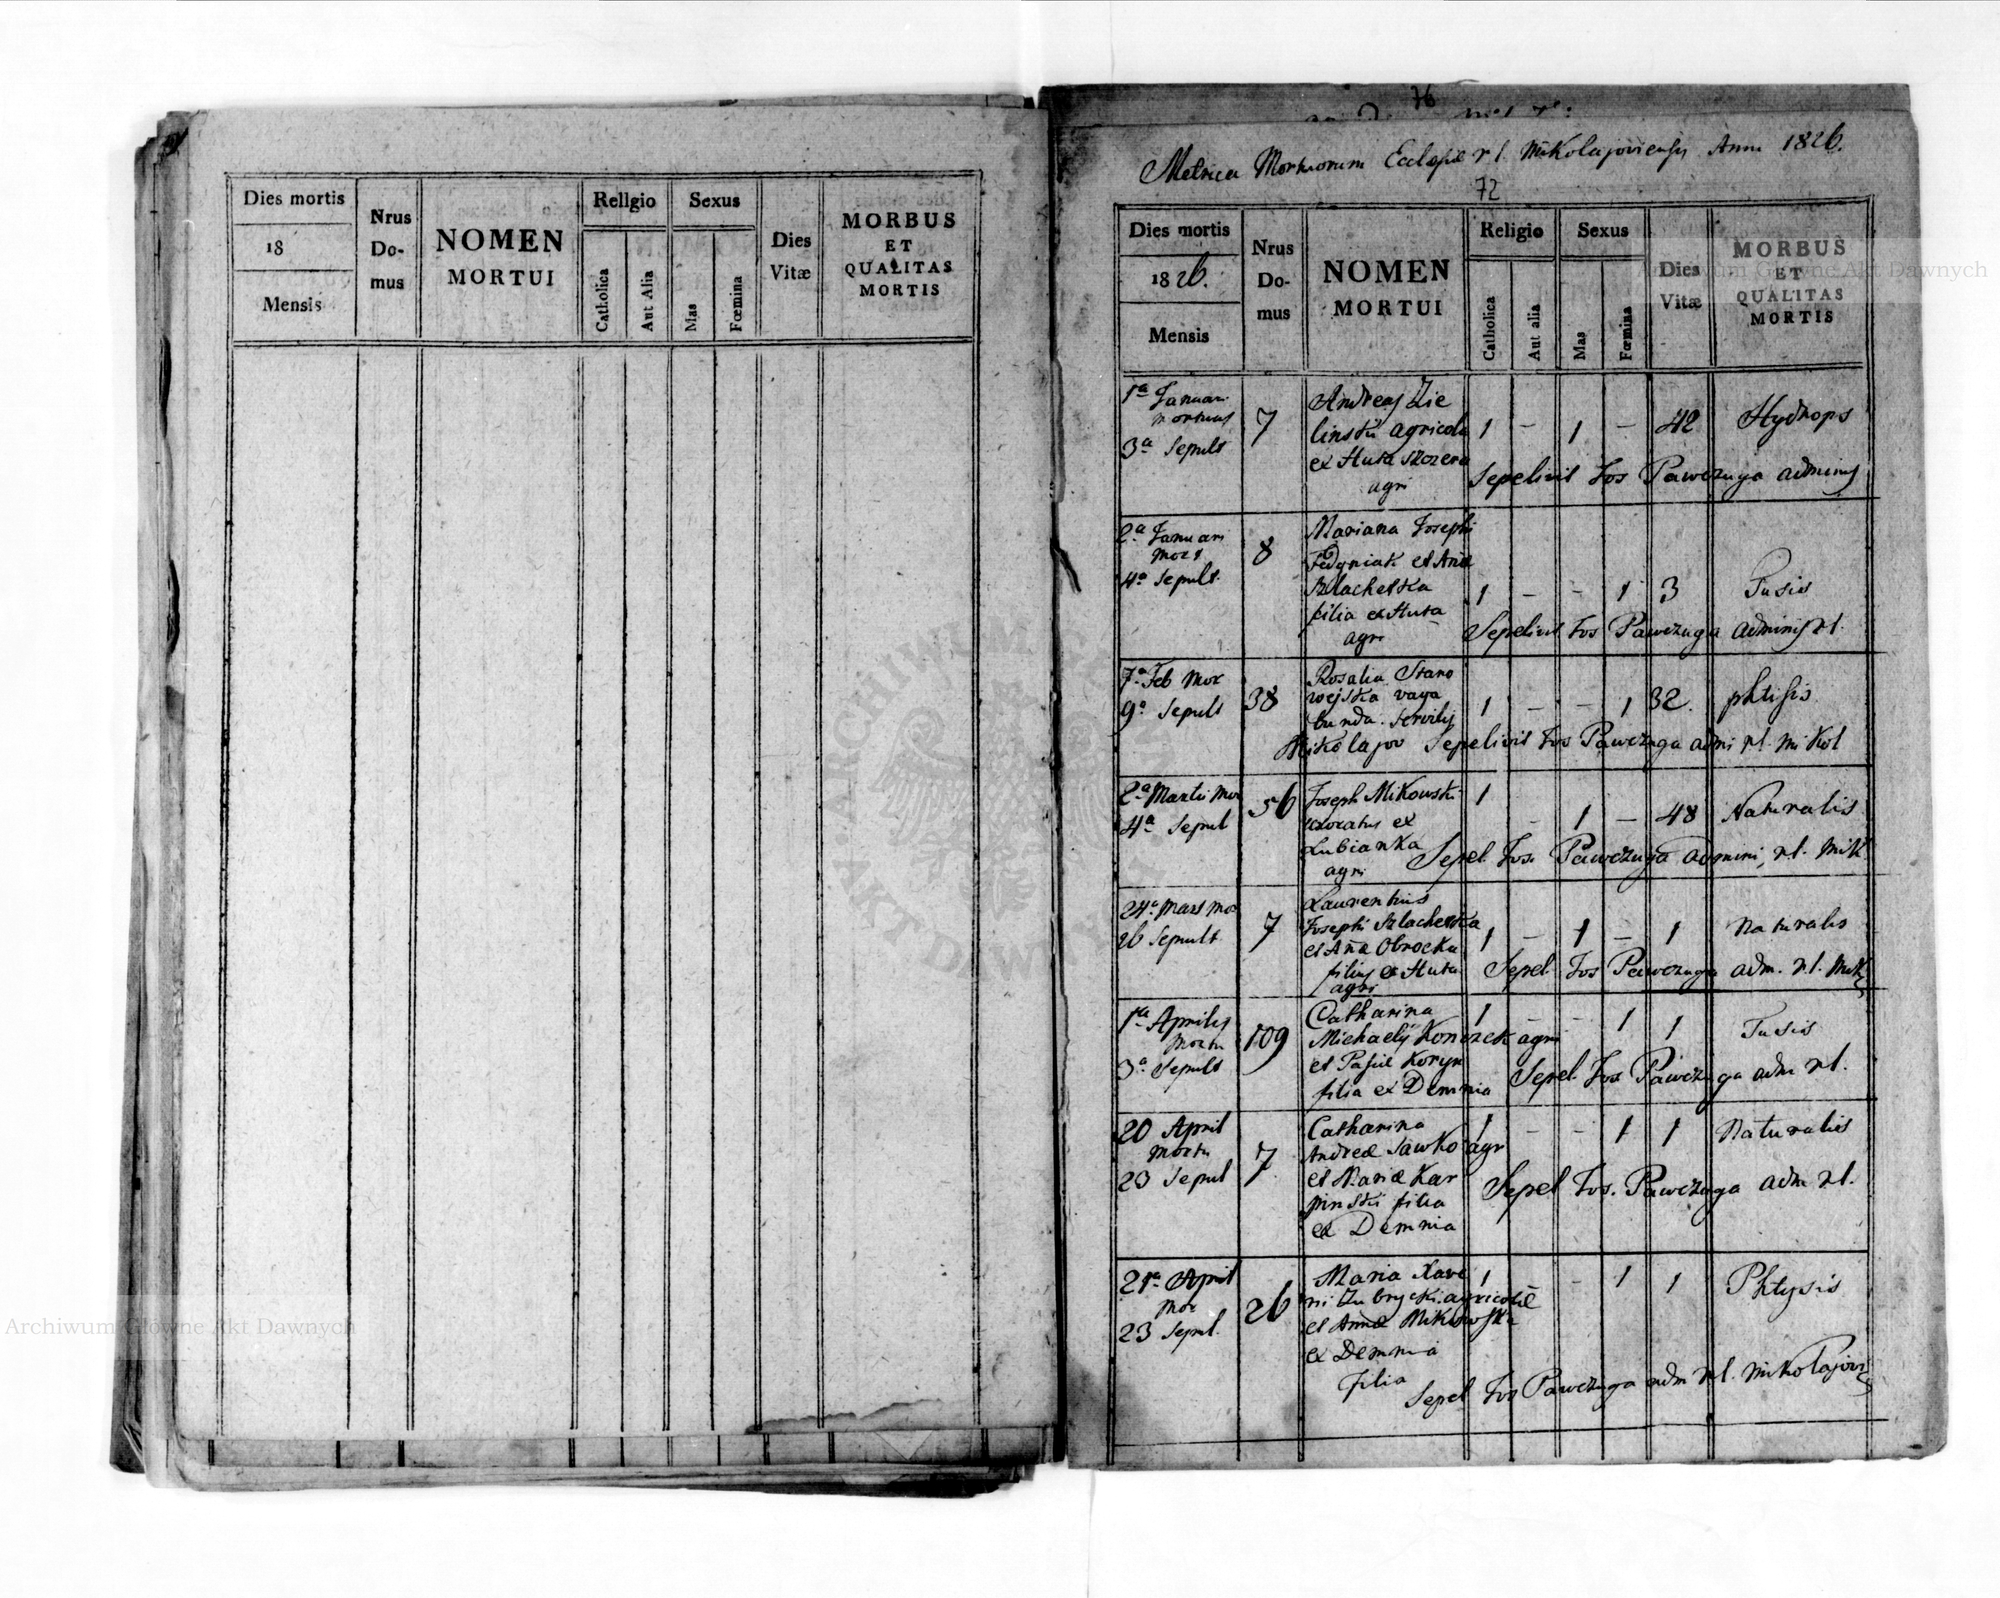 Dies mortis
18
Mensis
Nrus
Do-
mus
NOMEN
MORTUI
Religio
Catholica
Aut Alia
Sexus
Mas
Fœmina
Dies
Vitæ
MORBUS
ET
QUALITAS
MORTIS
76
Metrica Mortuorum Ecclesiæ r l. Mikolajoviensis Anni 1826.
72
Dies mortis
1826.
Mensis
Nrus
Do-
mus
NOMEN
MORTUI
Religio
Catholica
Aut alia
Sexus
Mas
Fœmina
Dies
Vitæ
MORBUS
ET
QUALITAS
MORTIS
1a Januari
mortuus
3a Sepult
7
Andreas Zie
linski agricola
ex Huta Szczera
agri
1 – 1 – 42 Hydrops
Sepelivit Jos Pawczuga adminis
2a Januari
mort
4a Sepult.
8
Mariana Josephi
Fedyniak et Annæ
Szlachetka
filia ex Huta
agri
1 – – 1 3 Tusis
Sepelivit Jos Pawczuga adminis rl.
7a Feb Mor
9a Sepult
38
Rosalia Staro
wejska vaga
bunda. Servilis
1 – – 1 32. phtisis
Mikolajov Sepelivit Jos Pawczuga admi rl. Mikol
2a Martii Mor
4a Sepul
56
Joseph Mikowski
uxoratus ex
Lubianka
agri
1 – 1 – 48 Naturalis
Sepel Jos. Pawczuga admini, rl. Mik
24a Mart Mor
26 Sepult
7
Laurentius
Josephi Szlachetka
et Aña Obrocka
filius ex Huta
agri
1 – 1 – 1 Naturalis
Sepel Jos Pawczuga adm. rl. Mik
1a Aprilis
Mortu
3a Sepult
109
Catharina
Michaelis Konczek agri
et Paſie Koryn
filia ex Demnia
1 – – 1 1 Tusis
Sepel. Jos Pawczuga adm rl.
20 April
Mortu
23 Sepul
7
Catharina
Andreæ Sawko agr
et Mariæ Kar
pinski filia
ex Demnia
1 – – 1 1 Naturalis
Sepel Jos. Pawczuga adm rl.
21a April
Mor
23 Sepul.
26
Maria Xave
ri Zubrycki agricolæ
et Annæ Mikłowska
ex Demnia
filia
1 – 1 1 Phtysis
Sepel Jos Pawczuga adm rl. Mikolajovi
Archiwum Główne Akt Dawnych
Archiwum Główne Akt Dawnych
ARCHIWUM GŁÓWNE AKT DAWNYCH